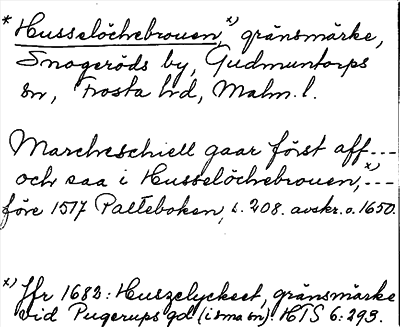 * Husselöchebrouen,x) gränsmärke,
Snogeröds by, Gudmuntorps
sn, Frosta hd, Malm. l.
Marcheschiell gaar först aff---
och saa i Husselöchebrouen,x)---
före 1517 Palteboken, s. 208. avskr. o. 1650.
x) Jfr 1682: Huszelyckeet, gränsmärke
vid Pugerups gd (i sma sn). HTS 6:293.